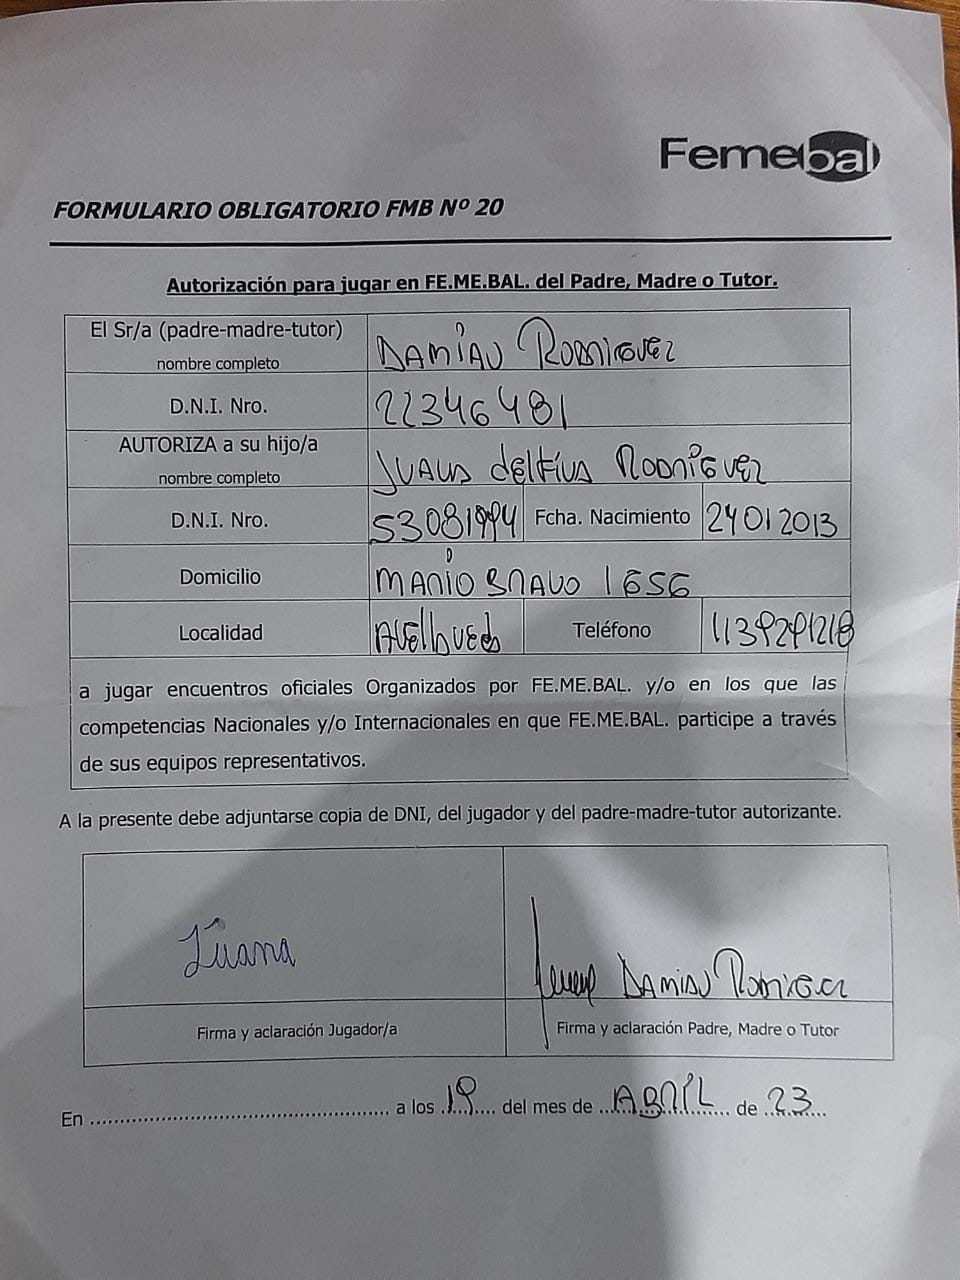 Femebal
FORMULARIO OBLIGATORIO FMB Nº 20
Autorización para jugar en FE.ME.BAL. del Padre, Madre o Tutor.
El Sr/a (padre-madre-tutor) nombre completo DAMIAN RODRIGUEZ
D.N.I. Nro. 22346481
AUTORIZA a su hijo/a nombre completo RODRIGUEZ
D.N.I. Nro. Fcha. Nacimiento 24012013
Domicilio MARIO BRAVO 1656
Localidad Teléfono
a jugar encuentros oficiales Organizados por FE.ME.BAL. y/o en los que las
competencias Nacionales y/o Internacionales en que FE.ME.BAL. participe a través
de sus equipos representativos.
A la presente debe adjuntarse copia de DNI, del jugador y del padre-madre-tutor autorizante.
Luana
DAMIAN RODRIGUEZ
Firma y aclaración Jugador/a
Firma y aclaración Padre, Madre o Tutor
En ........................ a los 19 del mes de ABRIL de 23